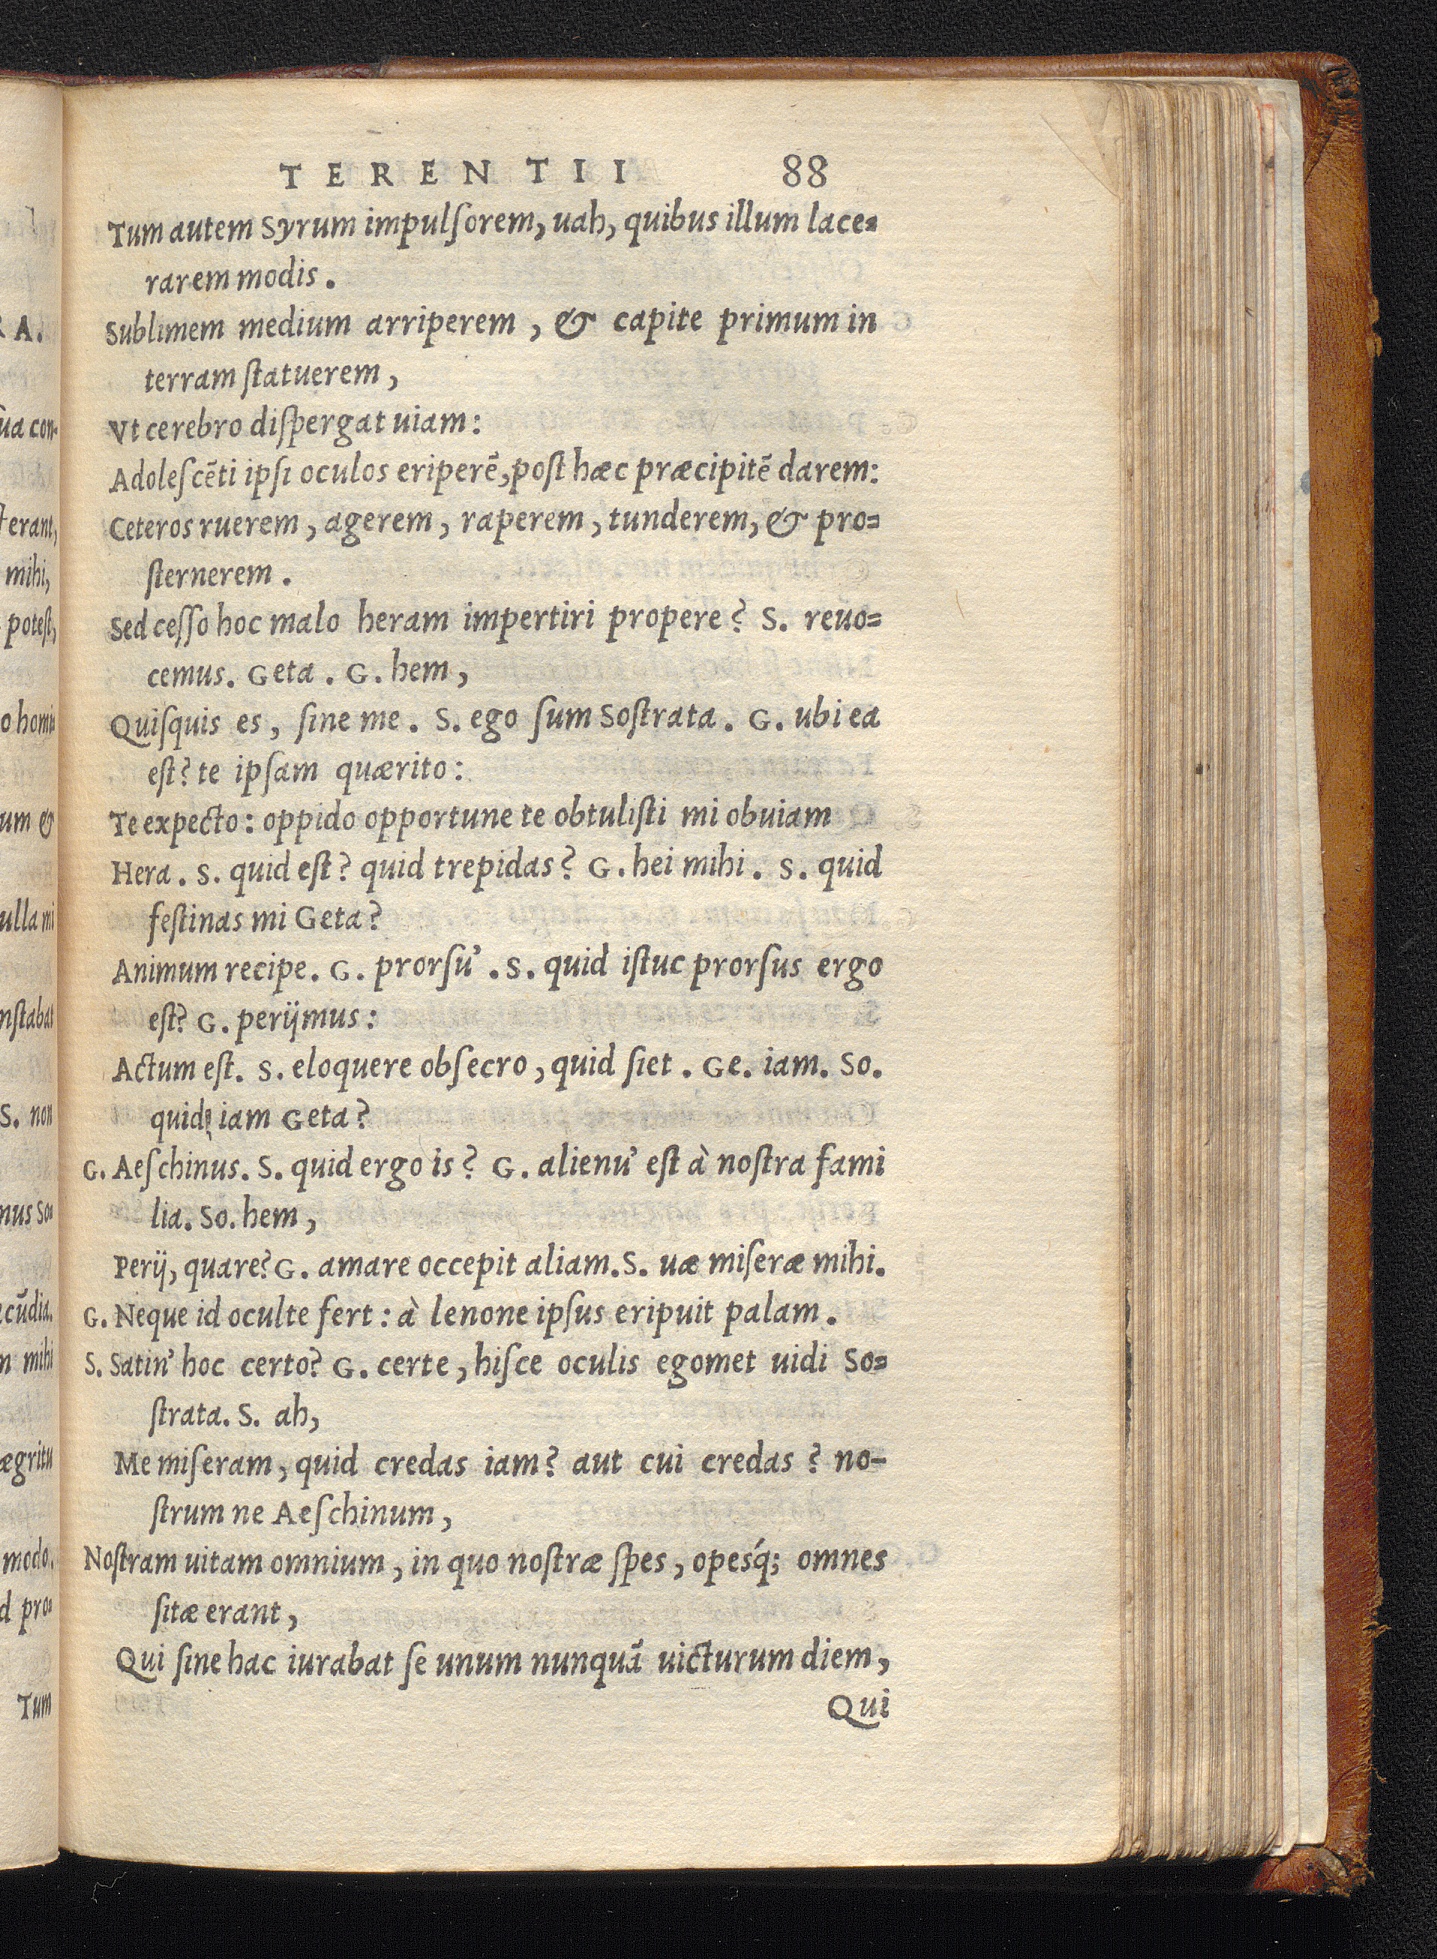 TERENTII 88
Tum autem Syrum impulſorem, uah, quibus illum lace=
rarem modis.
Sublimem medium arriperem, & capite primum in
terram ſtatuerem,
Vt cerebro diſpergat uiam:
Adoleſcēti ipſi oculos eriperē, poſt hæc præcipitē darem:
Ceteros ruerem, agerem, raperem, tunderem, & pro=
ſternerem.
Sed ceſſo hoc malo heram impertiri propere? S. reuo=
cemus. Geta. G. hem,
Quiſquis es, ſine me. S. ego ſum Soſtrata. G. ubi ea
eſt? te ipſam quærito:
Te expecto: oppido opportune te obtuliſti mi obuiam
Hera. S. quid eſt? quid trepidas? G. hei mihi. S. quid
feſtinas mi Geta?
Animum recipe. G. prorſu'. S. quid iſtuc prorſus ergo
eſt? G. perijmus:
Actum eſt. S. eloquere obſecro, quid ſiet. Ge. iam. So.
quid, iam Geta?
G. Aeſchinus. S. quid ergo is? G. alienu' eſt à noſtra fami
lia. So. hem,
Perij, quare? G. amare occepit aliam. S. uæ miſeræ mihi.
G. Neque id occulte fert: à lenone ipſus eripuit palam.
S. Satin' hoc certo? G. certe, hiſce oculis egomet uidi So=
ſtrata. S. ah,
Me miſeram, quid credas iam? aut cui credas? no-
ſtrum ne Aeſchinum,
Noſtram uitam omnium, in quo noſtræ ſpes, opesq́; omnes
ſitæ erant,
Qui ſine hac iurabat ſe unum nunquā uicturum diem,
Qui
R A.
ua con-
erant,
mihi,
poteſt,
o homi
um &
ulla mi
nſtabat
S. non
nus So=
cūdia.
n mihi
ægritu
modo.
d pro=
Tum